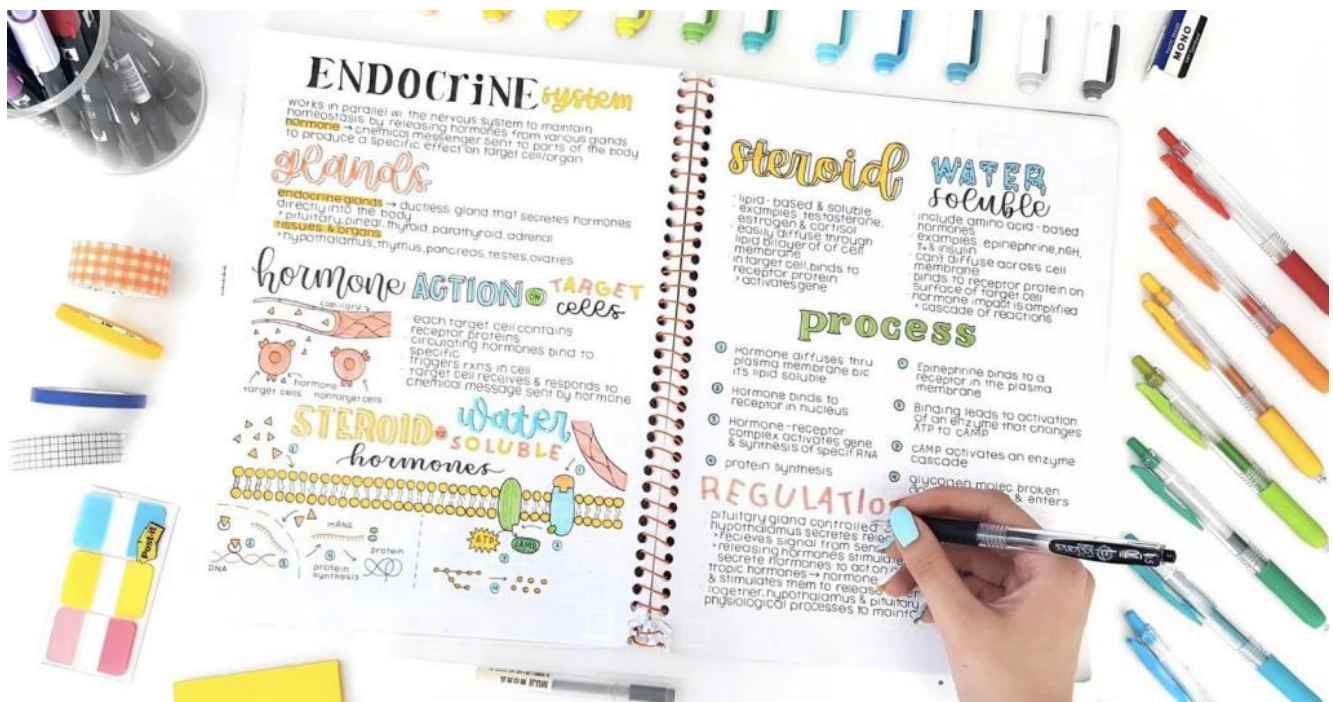 ENDOCRiNE system
works in parallel w/ the nervous system to maintain
homeostasis by releasing hormones from various glands
hormone → chemical messenger sent to parts of the body
to produce a specific effect on target cell/organ
glands
endocrine glands → ductless gland that secretes hormones
directly into the body
pituitary, pineal, thyroid, parathyroid, adrenal
tissues & organs
hypothalamus, thymus, pancreas, testes, ovaries
hormone ACTION ON TARGET
cells
capillary
target cells
hormone
nontarget cells
each target cell contains
receptor proteins
circulating hormones bind to
specific
triggers rxns in cell
target cell receives & responds to
chemical message sent by hormone
STEROID vs water
SOLUBLE
hormones
①
①
mRNA
②
DNA
③
④
protein
synthesis
protein
ATP
cAMP
②
③
④
steroid
lipid-based & soluble
examples: testosterone,
estrogen & cortisol
easily diffuse through
lipid bilayer of cell
membrane
in target cell, binds to
receptor protein
activates gene
WATER
soluble
include amino acid-based
hormones
examples: epinephrine, hGH,
T4 & insulin
can't diffuse across cell
membrane
binds to receptor protein on
surface of target cell
hormone impact is amplified
cascade of reactions
process
① Hormone diffuses thru
plasma membrane b/c
it's lipid soluble
② Hormone binds to
receptor in nucleus
③ Hormone-receptor
complex activates gene
& synthesis of specif RNA
④ protein synthesis
① Epinephrine binds to a
receptor in the plasma
membrane
② Binding leads to activation
of an enzyme that changes
ATP to cAMP
③ cAMP activates an enzyme
cascade
④ glycogen molec broken
& enters
REGULATION
pituitary gland controlled
hypothalamus secretes
recieves signal from
releasing hormones
secrete hormones to action
tropic hormones → hormone
& stimulates them to release
together, hypothalamus & pituitary
physiological processes to
MONO
Post-it
MUJI
SARASA